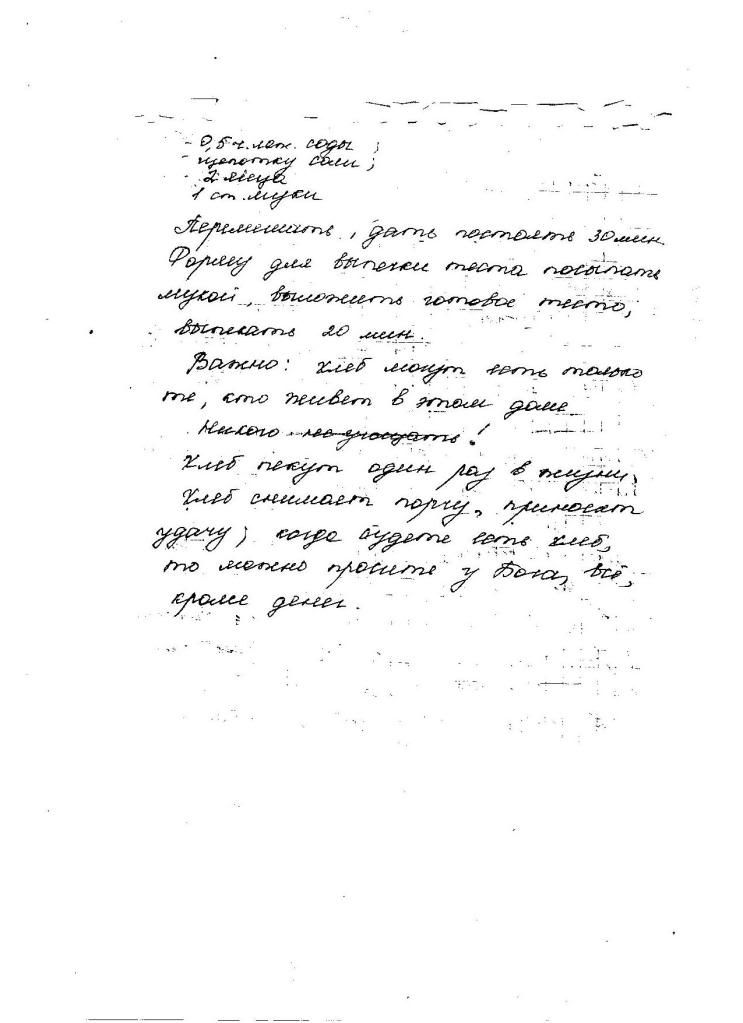 - 0,5 ч. лож. соды ;
- щепотку соли ;
- 2 яйца
1 ст. муки
Перемешать, дать постоять 30 мин.
Форму для выпечки теста посыпать
мукой, выложить готовое тесто,
выпекать 20 мин.
Важно: хлеб могут есть только
те, кто живет в этом доме
Никого не угощать!
Хлеб пекут один раз в жизни,
Хлеб снимает порчу, приносит
удачу; когда будете есть хлеб,
то можно просить у Бога, всё,
кроме денег.